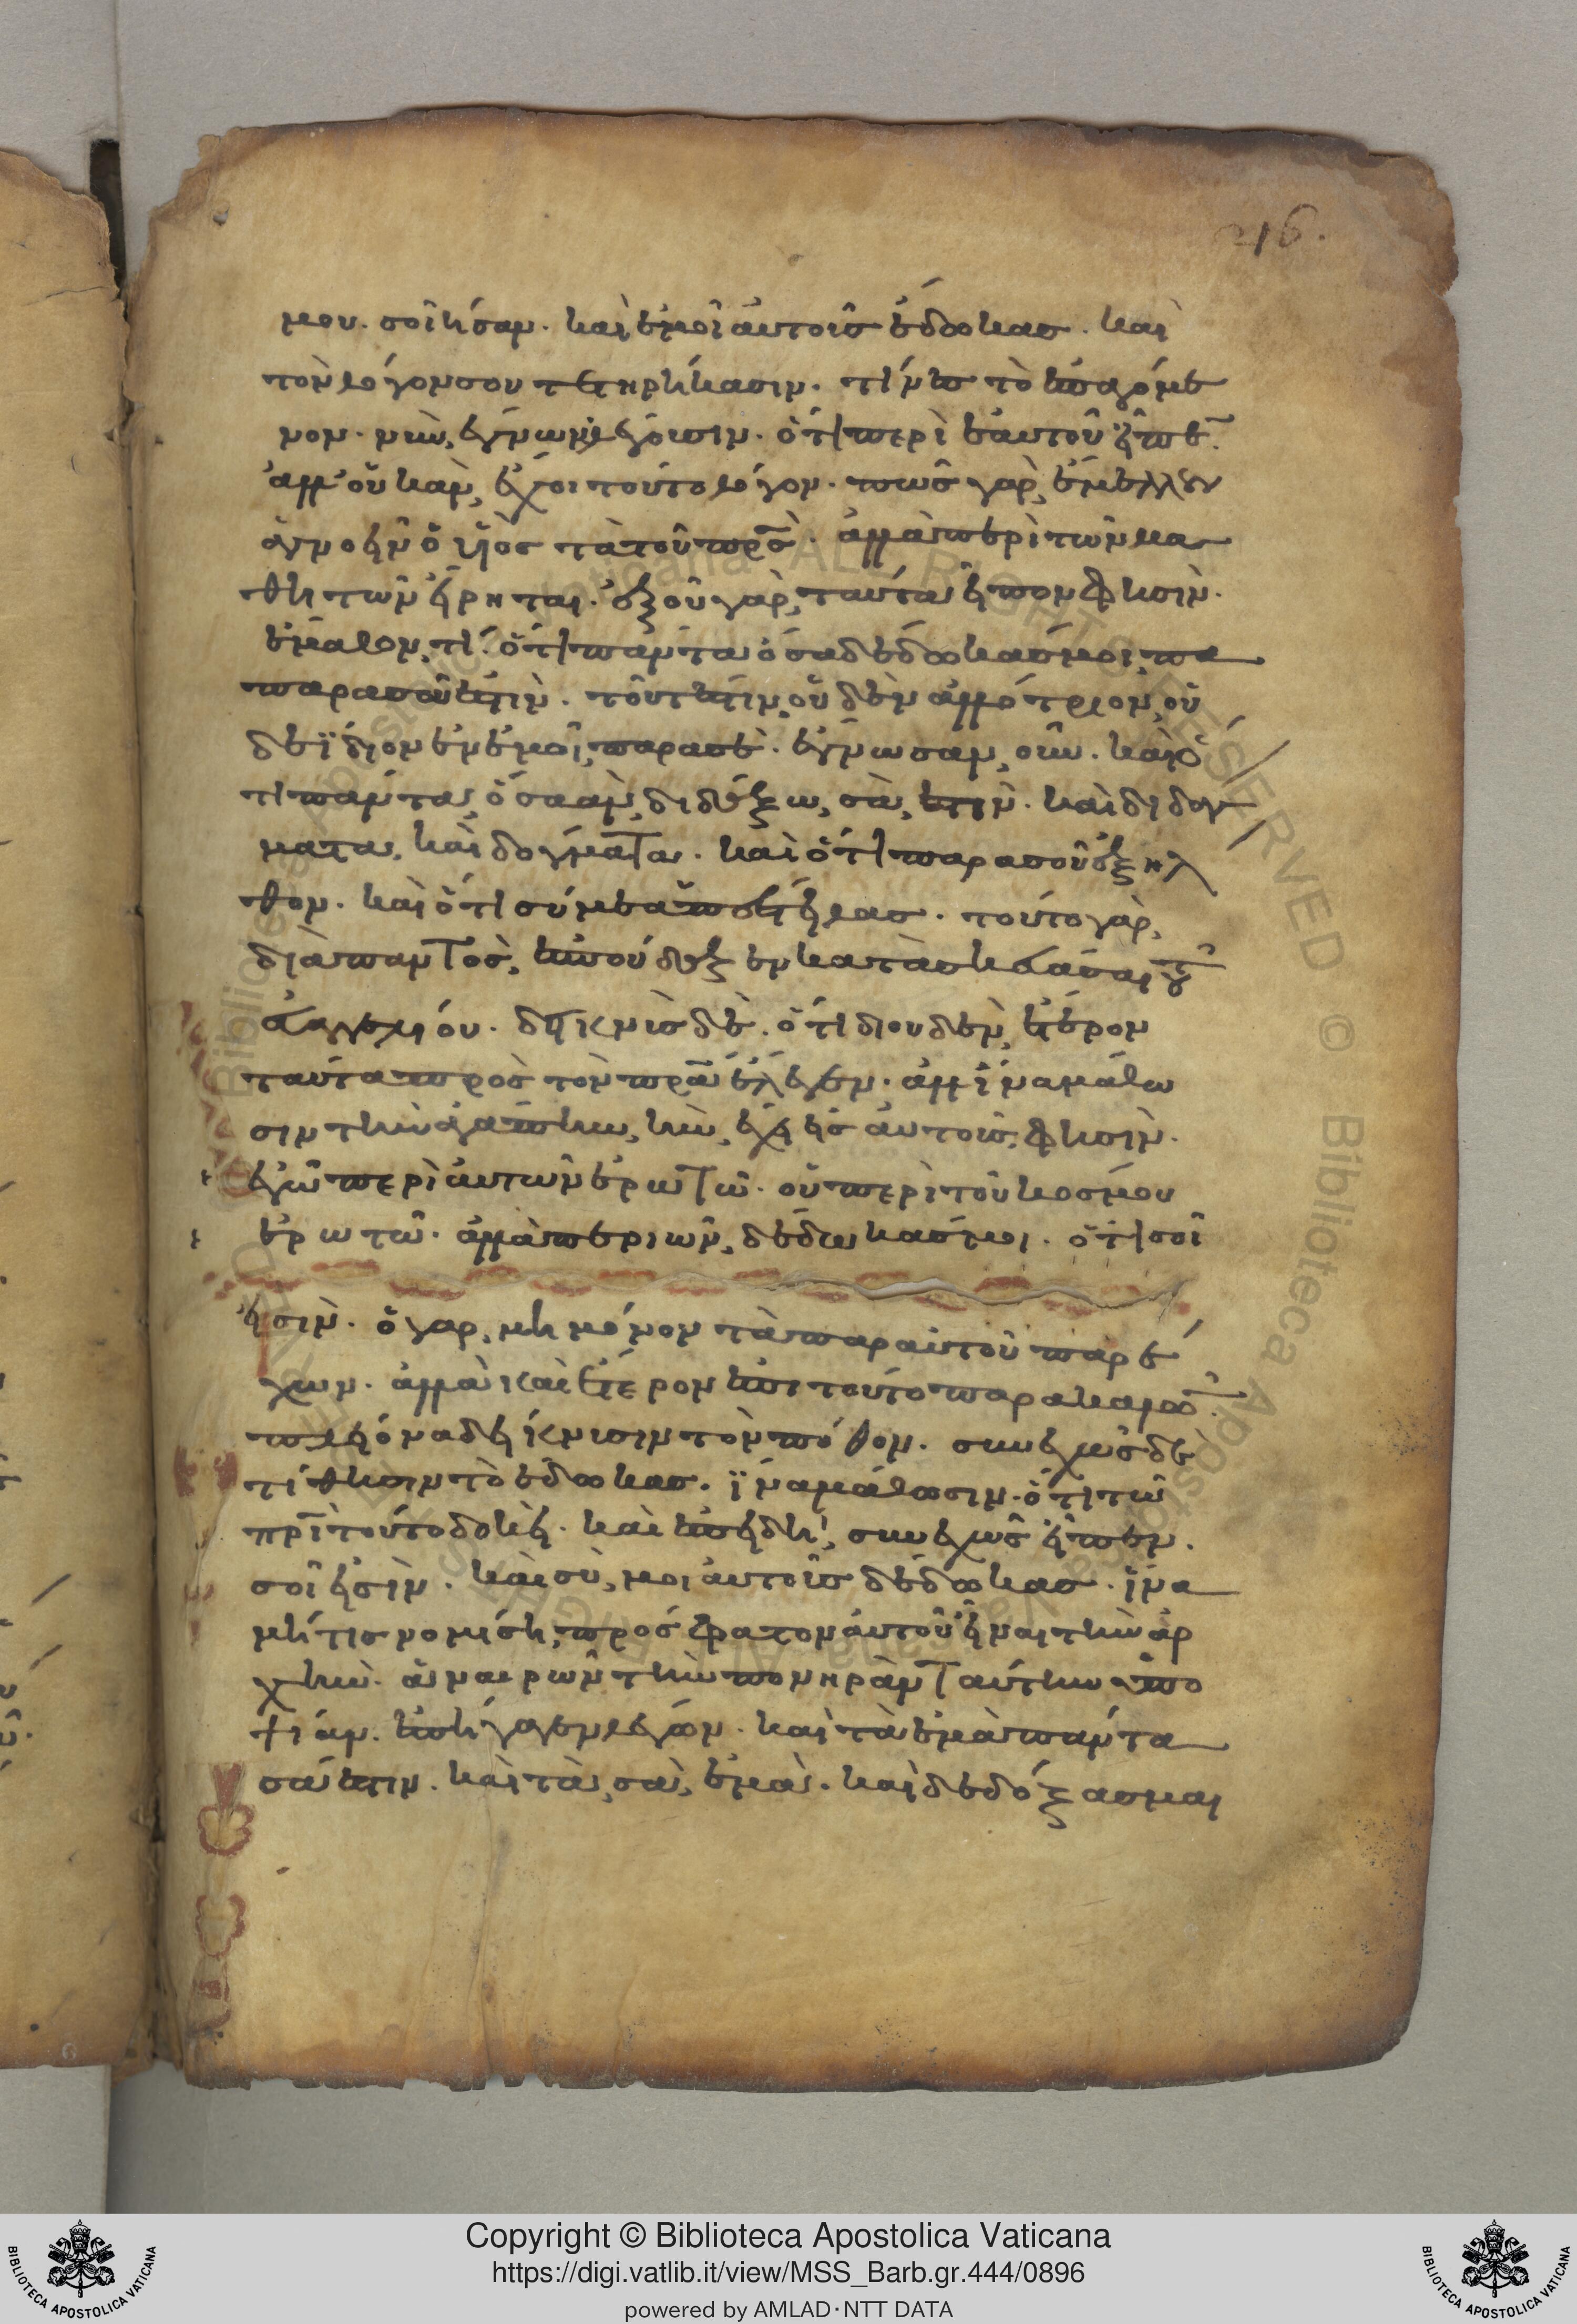 216.
μου. σοὶ ἦσαν. καὶ ἐμοὶ αὐτοὺς ἔδωκας. καὶ
τὸν λόγον σου τετηρήκασιν. τινὲς τὸ ἐπαγόμε
νον. νῦν ἔγνων λέγουσιν. ὅτι περὶ ἑαυτοῦ εἶπε.
ἀλλ' οὐκ ἂν ἔχοι τοῦτο λόγον. πῶς γὰρ ἔμελλεν
ἀγνοεῖν ὁ υἱὸς τὰ τοῦ πρσ. ἀλλὰ περὶ τῶν μα
θητῶν εἴρηται. ἐξ οὗ γὰρ ταῦτα εἶπον φησὶν.
ἔμαθον τί; ὅτι πάντα ὅσα δέδωκάς μοι
παρὰ σοῦ ἐστιν. τουτέστιν οὐδὲν ἀλλότριον οὐ
δὲ ἴδιον ἐν ἐμοὶ παρὰ σὲ. ἔγνωσαν οὖν. καὶ ὅ
τι πάντα ὅσα ἂν διδάξω, σὰ ἐστιν. καὶ διδαγ
ματα, καὶ δόγματα. καὶ ὅτι παρὰ σοῦ ἐξηλ
θον. καὶ ὅτι σύ με ἀπέστειλας. τοῦτο γὰρ
διὰ παντὸς ἐσπούδαζεν κατασκευάσαι τοῦ
εὐαγγελίου. δεικνὺς δὲ. ὅτι δι' οὐδὲν ἕτερον
ταῦτα πρὸς τὸν πρα ἔλεγεν. ἀλλ' ἵνα μάθω
σιν τὴν ἀγάπην, ἣν ἔχει εἰς αὐτοὺς φησὶν.
ἐγὼ περὶ αὐτῶν ἐρωτῶ. οὐ περὶ τοῦ κόσμου
ἐρωτῶ. ἀλλὰ περὶ ὧν δέδωκάς μοι. ὅτι σοὶ
εἰσὶν. ὁ γὰρ μὴ μόνον τὰ παρ' αὐτοῦ παρέ
χων. ἀλλὰ καὶ ἕτερον ἐπὶ τοῦτο παρακαλῶν
πλείονα δείκνυσιν τὸν πόθον. συνεχῶς δὲ
τίθησιν τὸ ἔδωκας. ἵνα μάθωσιν. ὅτι τῶ
πρι τοῦτο δοκεῖ. καὶ ἐπειδὴ συνεχῶς εἶπεν.
σοὶ εἰσὶν. καὶ σύ μοι αὐτοὺς δέδωκας. ἵνα
μή τις νομίση πρόσφατον αὐτοῦ εἶναι τὴν ἀρ
χὴν. ἀναιρῶν τὴν πονηρὰν ταύτην ὑπο
ψίαν. ἐπήγαγεν λέγων. καὶ τὰ ἐμὰ πάντα
σά ἐστιν. καὶ τὰ σὰ ἐμὰ. καὶ δεδόξασμαι
Copyright © Biblioteca Apostolica Vaticana
https://digi.vatlib.it/view/MSS_Barb.gr.444/0896
powered by AMLAD·NTT DATA
BIBLIOTECA APOSTOLICA VATICANA
BIBLIOTECA APOSTOLICA VATICANA